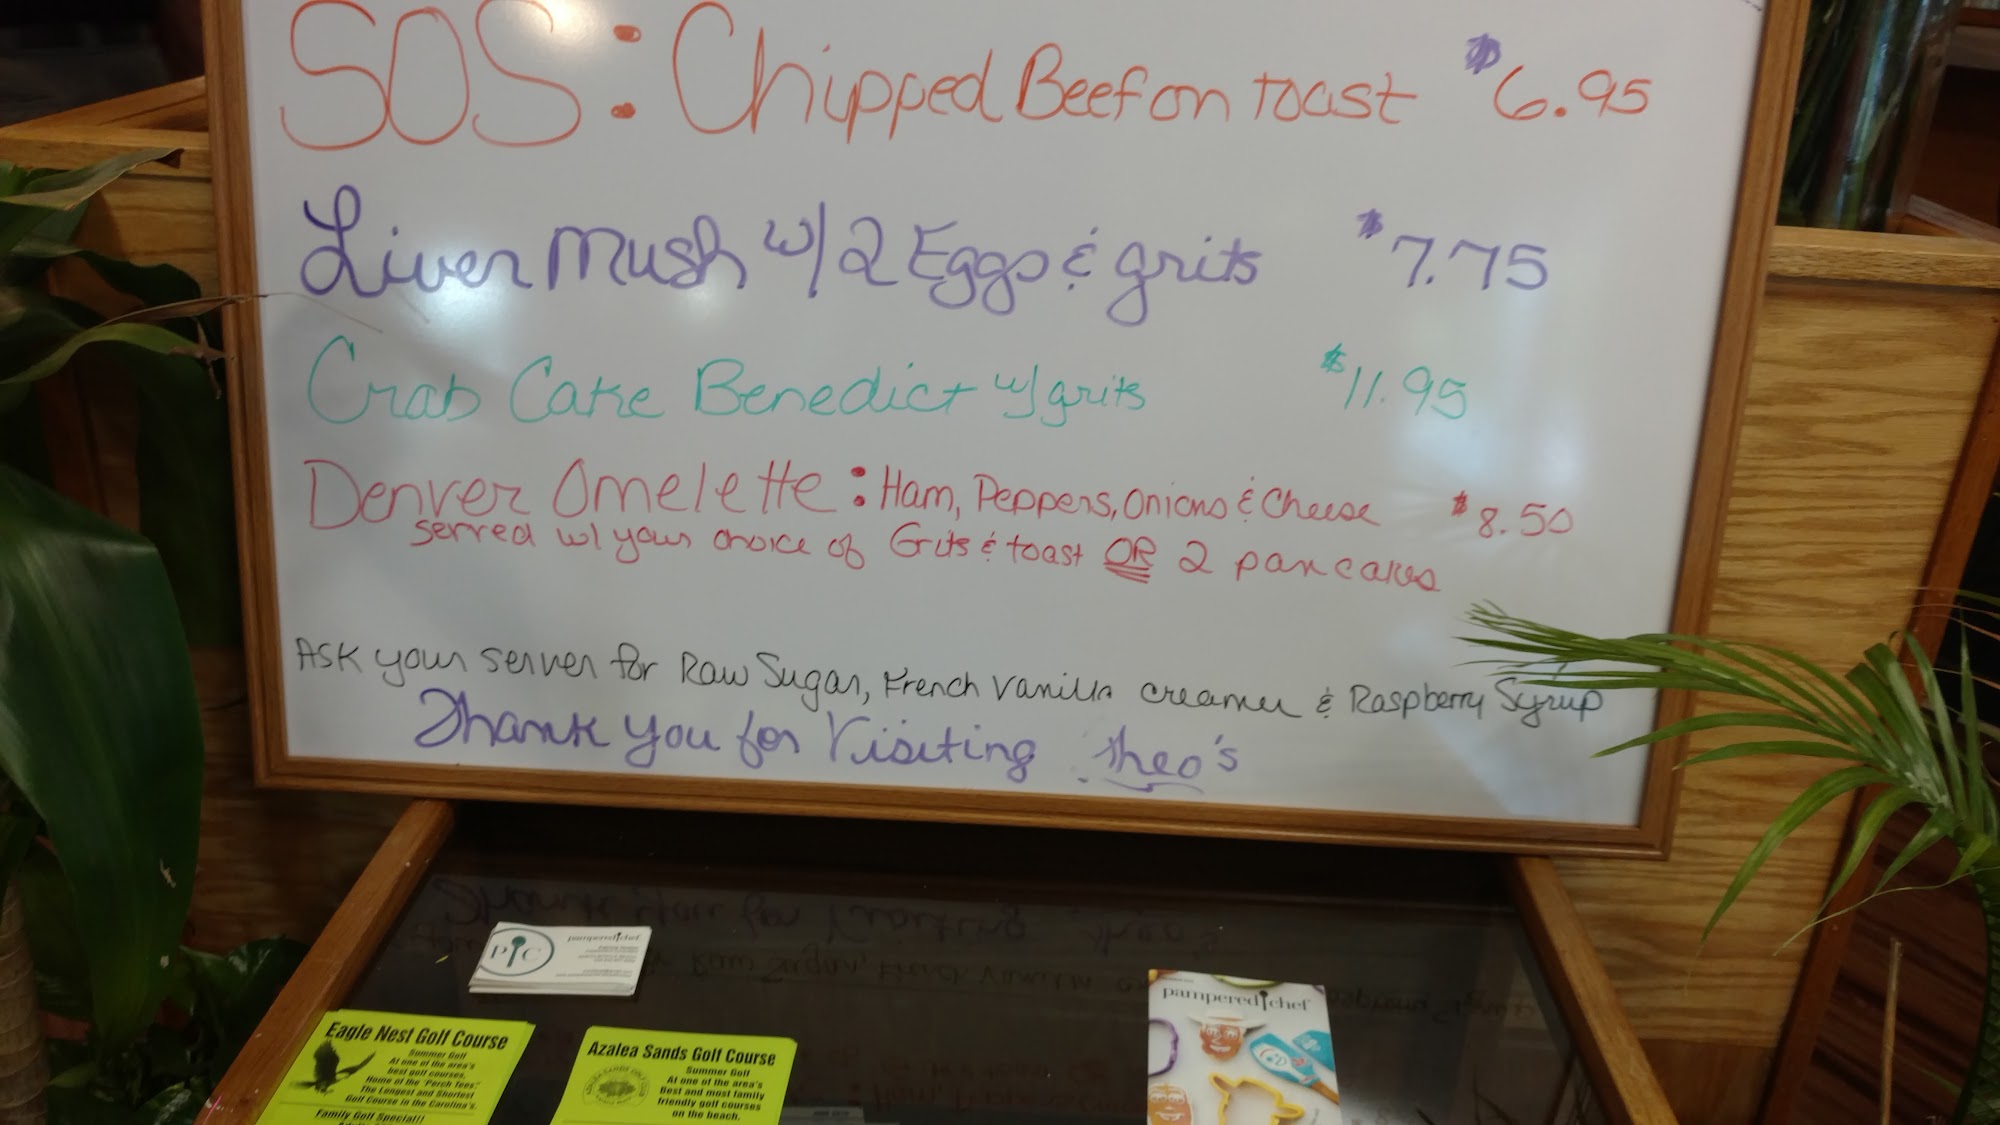 SOS: Chipped Beef on toast $6.95
Liver Mush w/ 2 Eggs & grits $7.75
Crab Cake Benedict w/ grits $11.95
Denver Omelette: Ham, Peppers, Onions & Cheese $8.50
served w/ your choice of Grits & toast OR 2 pancakes
Ask your server for Raw Sugar, French Vanilla creamer & Raspberry Syrup
Thank you for Visiting Theo's
PC
pampered chef
Eagle Nest Golf Course
Summer Golf
At one of the area's
best golf courses.
Home of the "Perch Tees."
The Longest and Shortest
Golf Course in the Carolina's.
Family Golf Special!!
Azalea Sands Golf Course
Summer Golf
At one of the area's
Best and most family
friendly golf courses
on the beach.
pampered chef